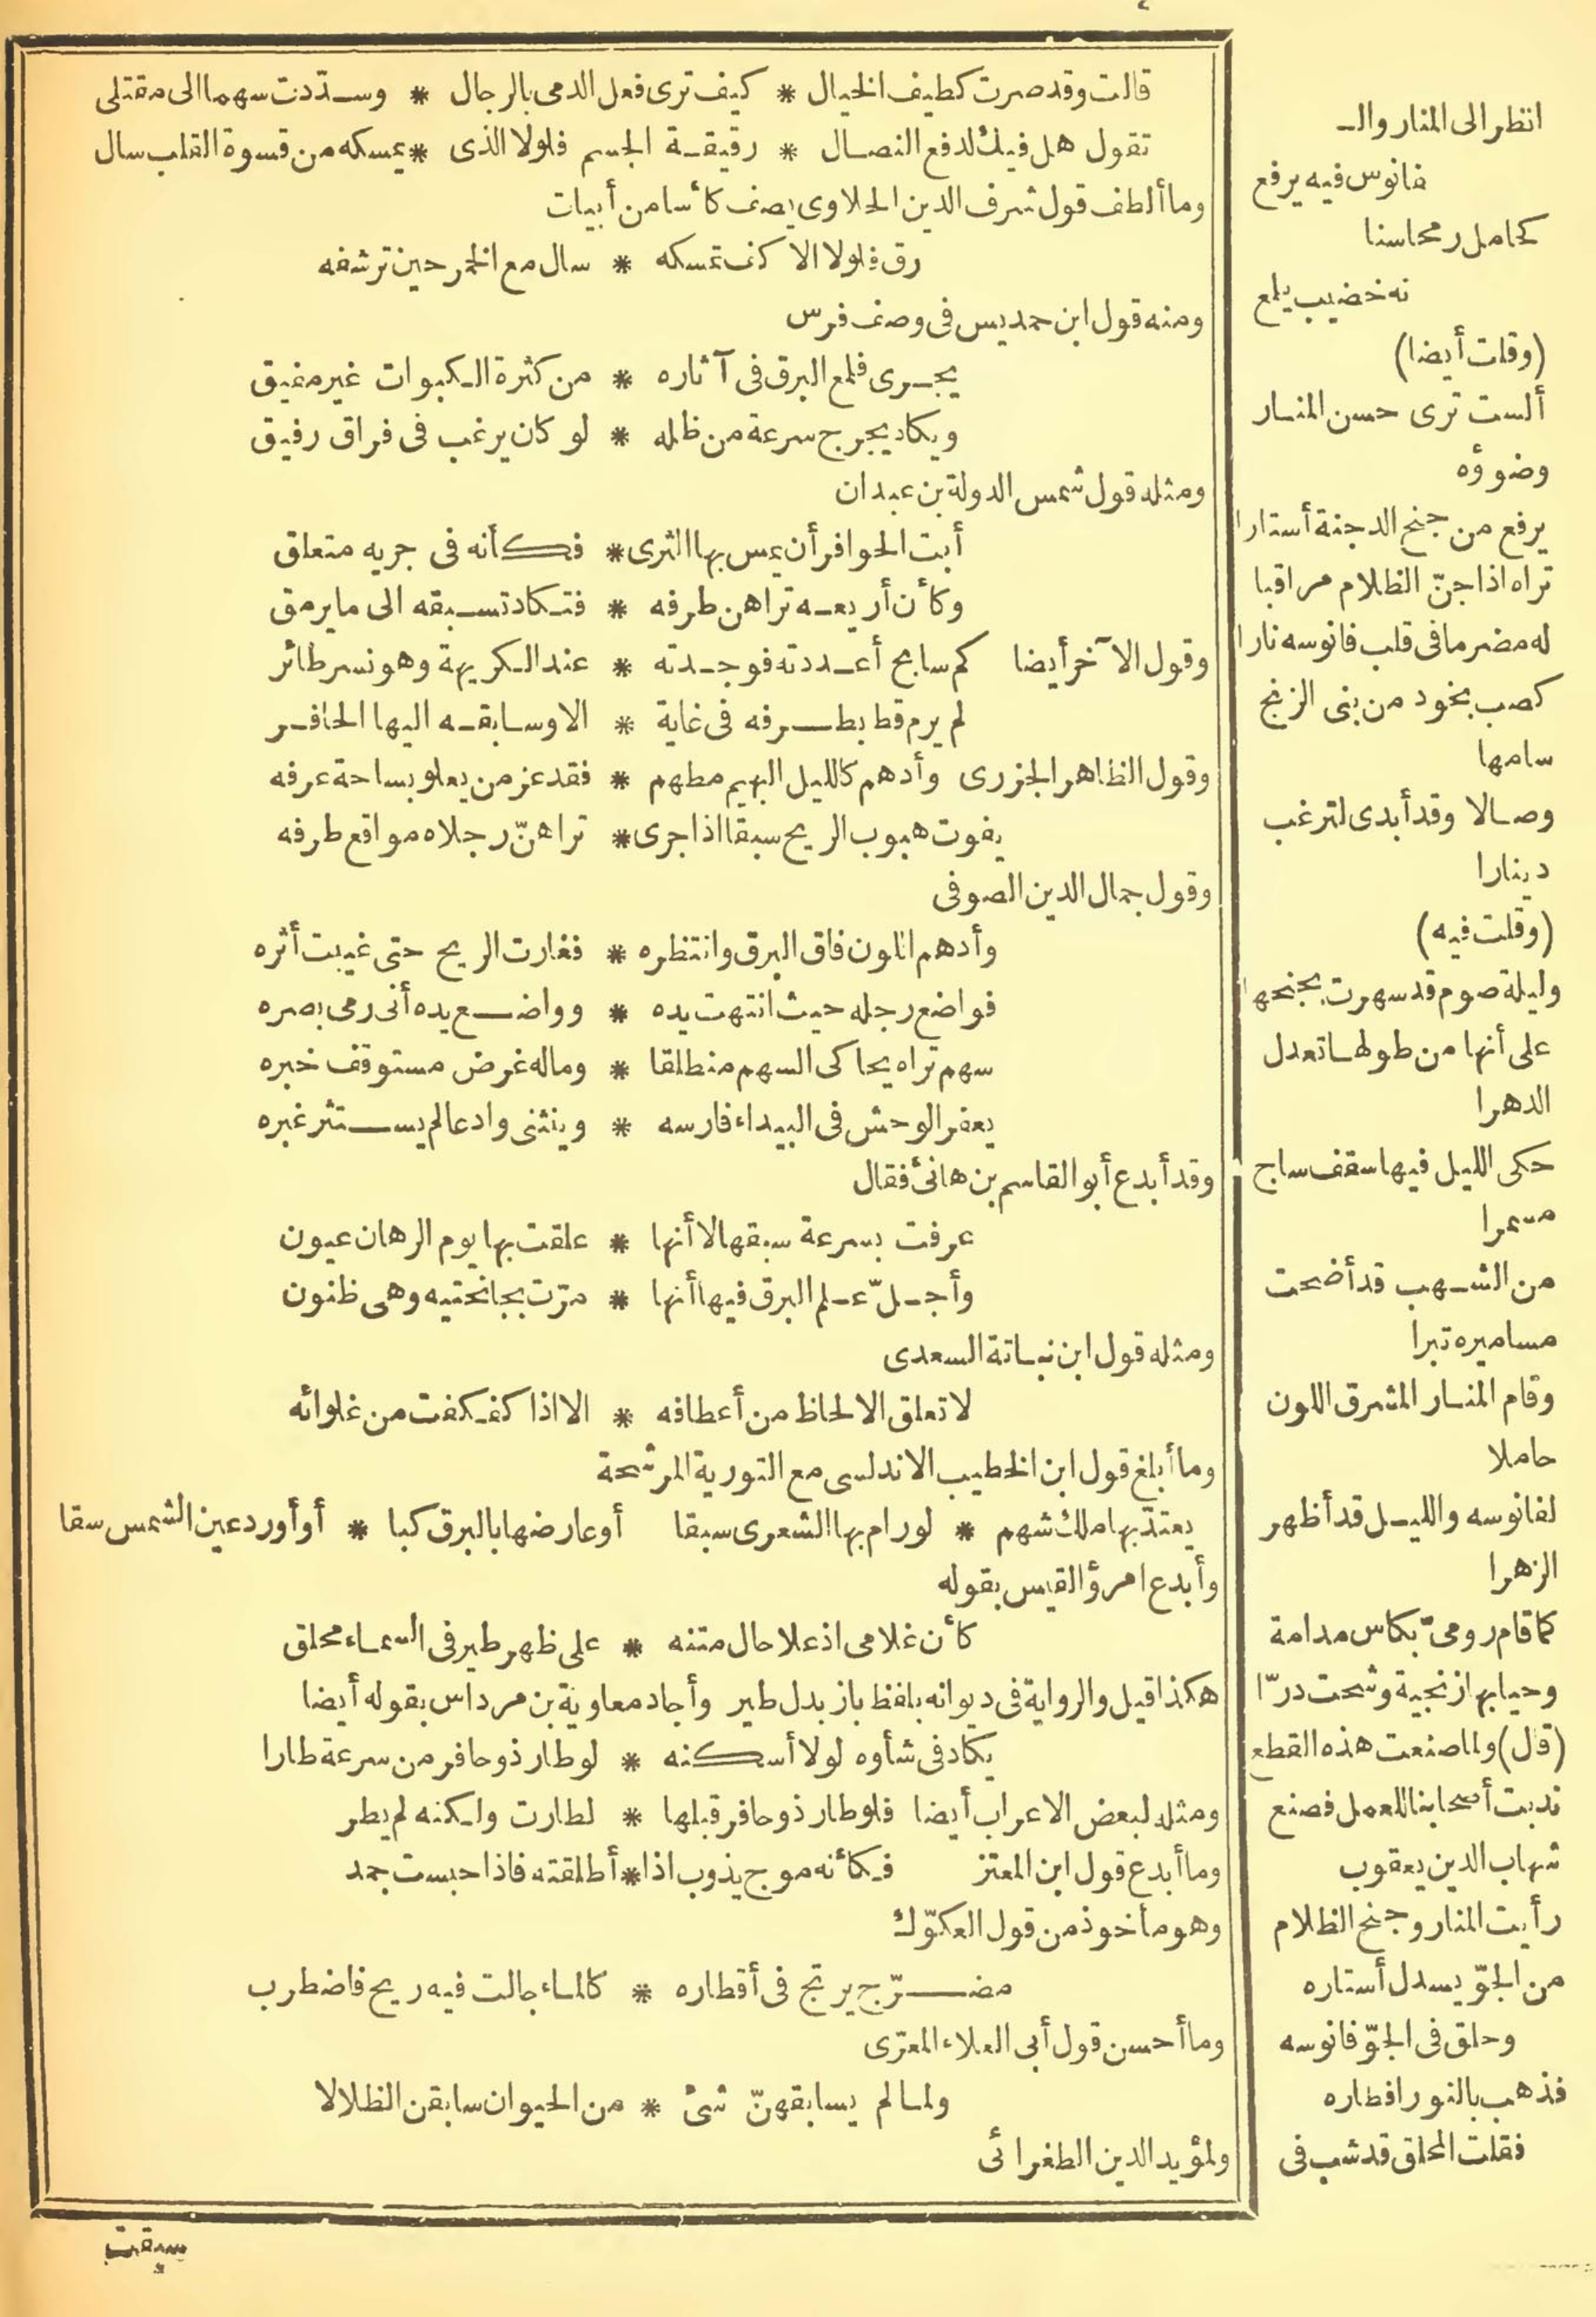 قالت وقد صرت كطيف الخيال * كيف ترى فعل الدمى بالرجال * وسددت سهما الى مقتلى
تقول هل فيك لدفع النصال * رقيقة الجسم فلولا الذى * يمسكه من قسوة القلب سال
وما ألطف قول شرف الدين الحلاوى يصف كأسا من أبيات
رق فلولا الاكف تمسكه * سال مع الخمر حين ترشفه
ومنه قول ابن حمديس فى وصف فرس
يجرى فلمع البرق فى آثاره * من كثرة الكبوات غير مفيق
ويكاد يخرج سرعة من ظله * لو كان يرغب فى فراق رفيق
ومثله قول شمس الدولة بن عبدان
أبت الحوافر أن يمس بها الثرى * فكأنه فى جريه متعلق
وكأن أربعه تراهن طرفه * فتكاد تسبقه الى ما يرمق
وقول الآخر أيضا كم سابح أعددته فوجدته * عند الكريهة وهو نسر طائر
لم يرم قط بطرفه فى غاية * الا وسابقه اليها الحافر
وقول الظاهر الجزرى وأدهم كالليل البهيم مطهم * فقد عز من يعلو بساحة عرفه
يفوت هبوب الريح سبقا اذا جرى * تراهنّ رجلاه مواقع طرفه
وقول جمال الدين الصوفى
وأدهم اللون فاق البرق وانتظره * فغارت الريح حتى غيبت أثره
فواضع رجله حيث انتهت يده * وواضع يده أنى رمى بصره
سهم تراه يحاكى السهم منطلقا * وماله غرض مستوقف خبره
يعقر الوحش فى البيداء فارسه * وينثنى وادعا لم يستثر غبره
وقد أبدع أبو القاسم بن هانئ فقال
عرفت بسرعة سبقها لا أنها * علقت بها يوم الرهان عيون
وأجلّ علم البرق فيها أنها * مرّت بجانحتيه وهى ظنون
ومثله قول ابن نباتة السعدى
لا تعلق الالحاظ من أعطافه * الا اذا كفكفت من غلوائه
وما أبلغ قول ابن الخطيب الاندلسى مع التورية المرشحة
يعتدّ بها ملك شهم * لو رام بها الشعرى سبقا أو عارضها بالبرق كبا * أو أورد عين الشمس سقا
وأبدع امرؤ القيس بقوله
كأن غلامى اذ علا حال متنه * على ظهر طير فى السماء محلق
هكذا قيل والرواية فى ديوانه بلفظ باز بدل طير وأجاد معاوية بن مرداس بقوله أيضا
يكاد فى شأوه لولا أسكنه * لو طار ذو حافر من سرعة طارا
ومثله لبعض الاعراب أيضا فلو طار ذو حافر قبلها * لطارت ولكنه لم يطر
وما أبدع قول ابن المعتز فكأنه موج يذوب اذا * أطلقته فاذا حبست جمد
وهو مأخوذ من قول العكوّك
مضرّج يرتج فى أقطاره * كالماء جالت فيه ريح فاضطرب
وما أحسن قول أبى العلاء المعرّى
ولما لم يسابقهنّ شئ * من الحيوان سابقن الظلالا
ولمؤيد الدين الطغرائى
سبقت
انظر الى المنار والـ
فانوس فيه يرفع
كحامل رمحا سنا
نه خضيب يلمع
(وقلت أيضا)
ألست ترى حسن المنار
وضوؤه
يرفع من جنح الدجنة أستارا
تراه اذا جنّ الظلام مراقبا
له مضرما فى قلب فانوسه نارا
كصب بخود من بنى الزنج
سامها
وصالا وقد أبدى لترغب
دينارا
(وقلت فيه)
وليلة صوم قد سهرت بجنحها
على أنها من طولها تعدل
الدهرا
حكى الليل فيها سقف ساج
مسمرا
من الشهب قد أضحت
مساميره تبرا
وقام المنار المشرق اللون
حاملا
لفانوسه والليل قد أظهر
الزهرا
كما قام رومىّ بكاس مدامة
وحيا بها زنجية وشحت درّا
(قال) ولما صنعت هذه القطع
ندبت أصحابنا للعمل فصنع
شهاب الدين يعقوب
رأيت المنار وجنح الظلام
من الجوّ يسدل أستاره
وحلق فى الجوّ فانوسه
فذهب بالنور افطاره
فقلت المحلق قد شب فى